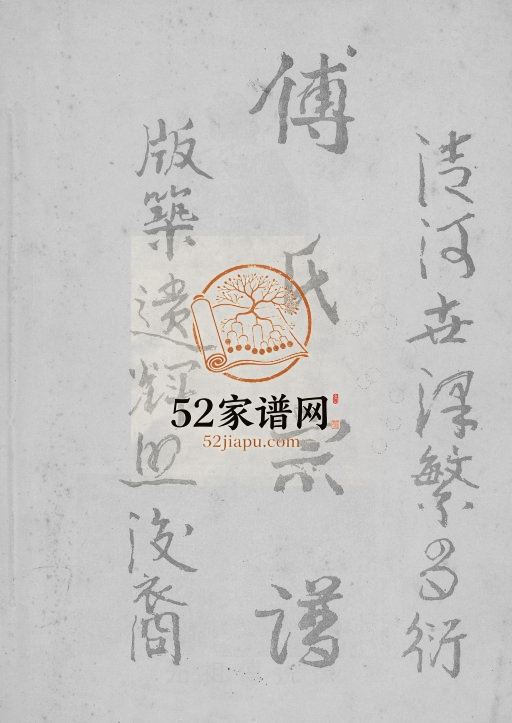 清河世泽繁昌衍
傅氏宗谱
版築遗辉照後裔
52家谱网
52jiapu.com